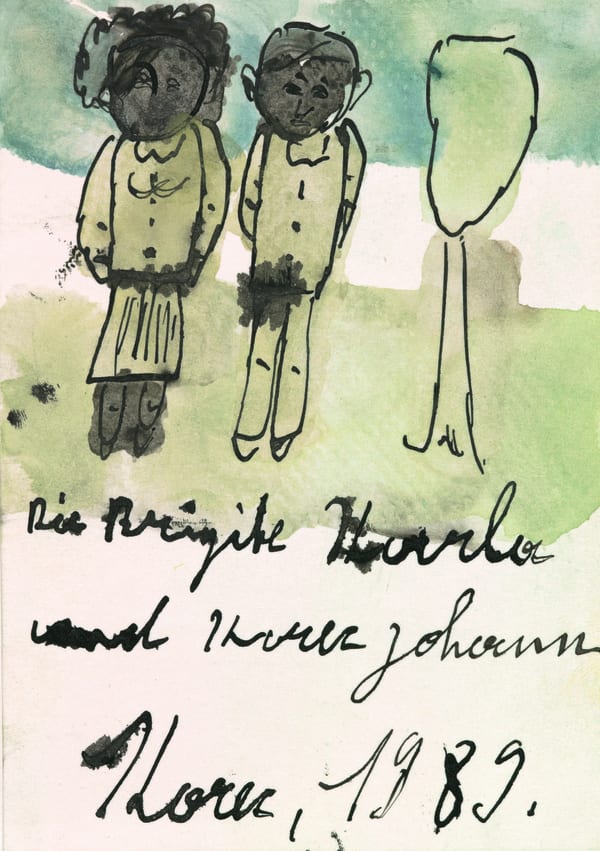 Die Brigite Karla
und Korec Johann
Korec, 1989.